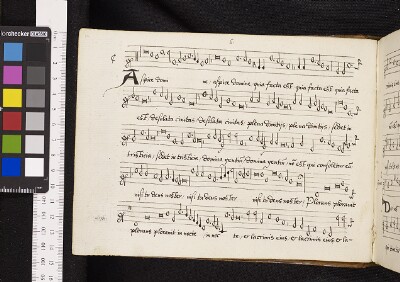 colorchecker CLASSIC
6
Aspice domi ne aspice domine quia facta est quia facta
est desolata civitas desolata civitas plena divitijs plena divitijs sedet in
tristitia sedet in tristitia domina gentium domina gentium non est qui consoletur eā
nisi tu deus noster nisi tu deus noster nisi tu deus noster Plorans ploravit
plorans ploravit in nocte in noc te et lacrimis eius et lacrimis eius et la-